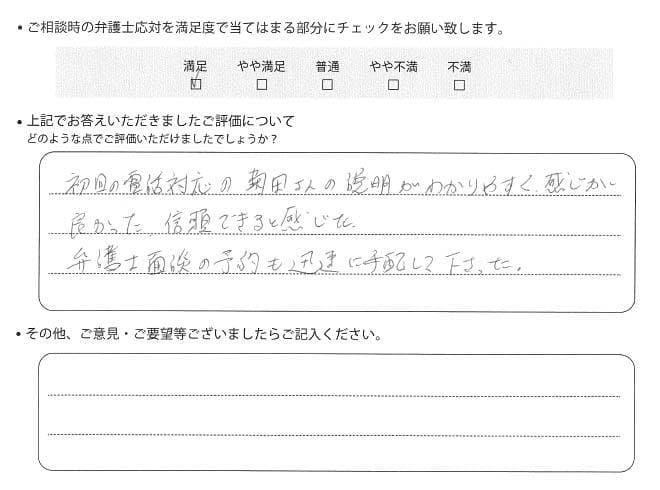 • ご相談時の弁護士応対を満足度で当てはまる部分にチェックをお願い致します。
満足 やや満足 普通 やや不満 不満
☑ □ □ □ □
• 上記でお答えいただきましたご評価について
どのような点でご評価いただけましたでしょうか？
初回の電話対応の菊田さんの説明がわかりやすく、感じが
良かった、信頼できると感じた。
弁護士面談の予約も迅速に手配して下さった。
• その他、ご意見・ご要望等ございましたらご記入ください。